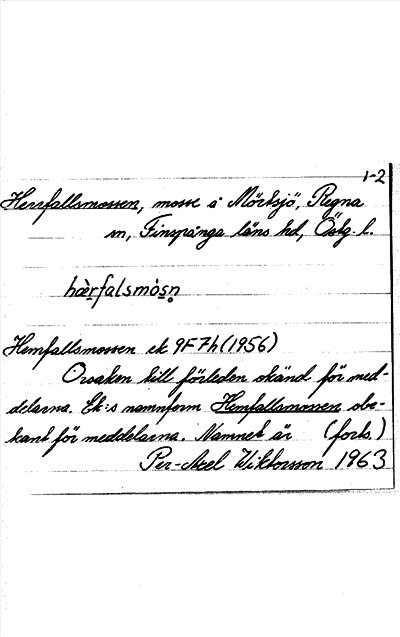 1-2
Herrfallsmossen, mosse i Mörksjö, Regna
sn, Finspånga läns hd, Östg. l.
hæ̀rfalsmòsn̥
Hemfallsmossen ek 9F7h (1956)
Orsaken till förleden okänd för med-
delarna. Ek:s namnform Hemfallsmossen obe-
kant för meddelarna. Namnet är (forts.)
Per-Axel Wiktorsson 1963